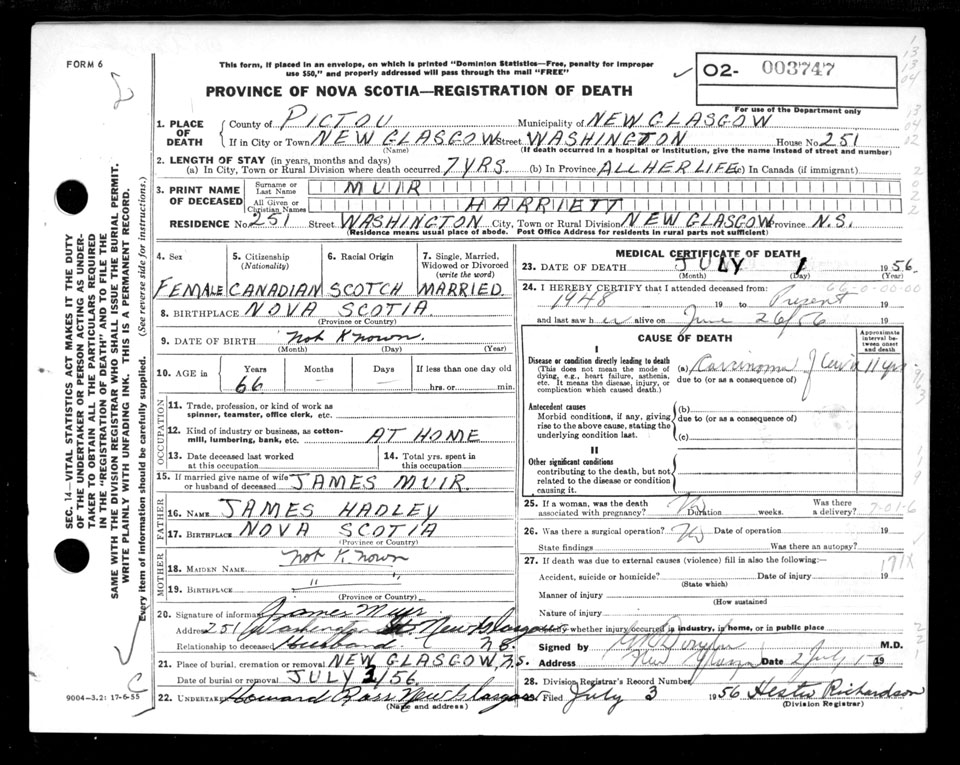 FORM 6
This form, if placed in an envelope, on which is printed "Dominion Statistics—Free, penalty for improper
use $50," and properly addressed will pass through the mail "FREE"
O2- 003747
For use of the Department only
PROVINCE OF NOVA SCOTIA—REGISTRATION OF DEATH
1. PLACE OF DEATH
County of PICTOU Municipality of NEW GLASGOW
If in City or Town NEW GLASGOW Street WASHINGTON House No 251
(Name) (If death occurred in a hospital or institution, give the name instead of street and number)
2. LENGTH OF STAY (in years, months and days)
(a) In City, Town or Rural Division where death occurred 7 YRS. (b) In Province ALL HER LIFE (c) In Canada (if immigrant)
3. PRINT NAME OF DECEASED
Surname or Last Name MUIR
All Given or Christian Names HARRIETT
RESIDENCE No. 251 Street WASHINGTON City, Town or Rural Division NEW GLASGOW Province N.S.
(Residence means usual place of abode. Post Office Address for residents in rural parts not sufficient)
4. Sex FEMALE
5. Citizenship (Nationality) CANADIAN
6. Racial Origin SCOTCH
7. Single, Married, Widowed or Divorced (write the word) MARRIED.
8. BIRTHPLACE NOVA SCOTIA
(Province or Country)
9. DATE OF BIRTH Not Known.
(Month) (Day) (Year)
10. AGE in Years Months Days If less than one day old
66 — — hrs. or min.
OCCUPATION
11. Trade, profession, or kind of work as
spinner, teamster, office clerk, etc.
12. Kind of industry or business, as cotton-
mill, lumbering, bank, etc. AT HOME
13. Date deceased last worked
at this occupation
14. Total yrs. spent in
this occupation
15. If married give name of wife
or husband of deceased JAMES MUIR.
FATHER
16. NAME JAMES HADLEY
17. BIRTHPLACE NOVA SCOTIA
(Province or Country)
MOTHER
18. MAIDEN NAME Not Known
19. BIRTHPLACE " "
(Province or Country)
20. Signature of informant James Muir
Address 251 Washington St. New Glasgow
Relationship to deceased Husband. N.S.
21. Place of burial, cremation or removal NEW GLASGOW, N.S.
Date of burial or removal JULY 3/56.
22. Undertaker Howard Ross New Glasgow
(Name and address)
MEDICAL CERTIFICATE OF DEATH
23. DATE OF DEATH JULY 1 1956.
(Month) (Day)
24. I HEREBY CERTIFY that I attended deceased from:
1948 19 to Present 19
and last saw her alive on June 26/56 19
CAUSE OF DEATH
Approximate interval between onset and death
I
Disease or condition directly leading to death
(This does not mean the mode of
dying, e.g., heart failure, asthenia,
etc. It means the disease, injury, or
complication which caused death.)
(a) Carcinoma of Cervix 11 yrs
due to (or as a consequence of)
Antecedent causes
Morbid conditions, if any, giving
rise to the above cause, stating the
underlying condition last.
(b)
due to (or as a consequence of)
(c)
II
Other significant conditions
contributing to the death, but not
related to the disease or condition
causing it.
25. If a woman, was the death
associated with pregnancy? No Duration weeks. Was there a delivery?
26. Was there a surgical operation? No Date of operation 19
State findings Was there an autopsy?
27. If death was due to external causes (violence) fill in also the following:—
171X
Accident, suicide or homicide? Date of injury 19
(State which)
Manner of injury
(How sustained
Nature of injury
whether injury occurred in industry, in home, or in public place
Signed by M.D.
Address New Glasgow Date 2 July 19
28. Division Registrar's Record Number
Filed July 3 1956 Hester Richardson
(Division Registrar)
SEC. 14—VITAL STATISTICS ACT MAKES IT THE DUTY
OF THE UNDERTAKER OR PERSON ACTING AS UNDER-
TAKER TO OBTAIN ALL THE PARTICULARS REQUIRED
IN THE "REGISTRATION OF DEATH" AND TO FILE THE
SAME WITH THE DIVISION REGISTRAR WHO SHALL ISSUE THE BURIAL PERMIT.
WRITE PLAINLY WITH UNFADING INK. THIS IS A PERMANENT RECORD.
Every item of information should be carefully supplied. (See reverse side for instructions.)
9004-3.2: 17-6-55